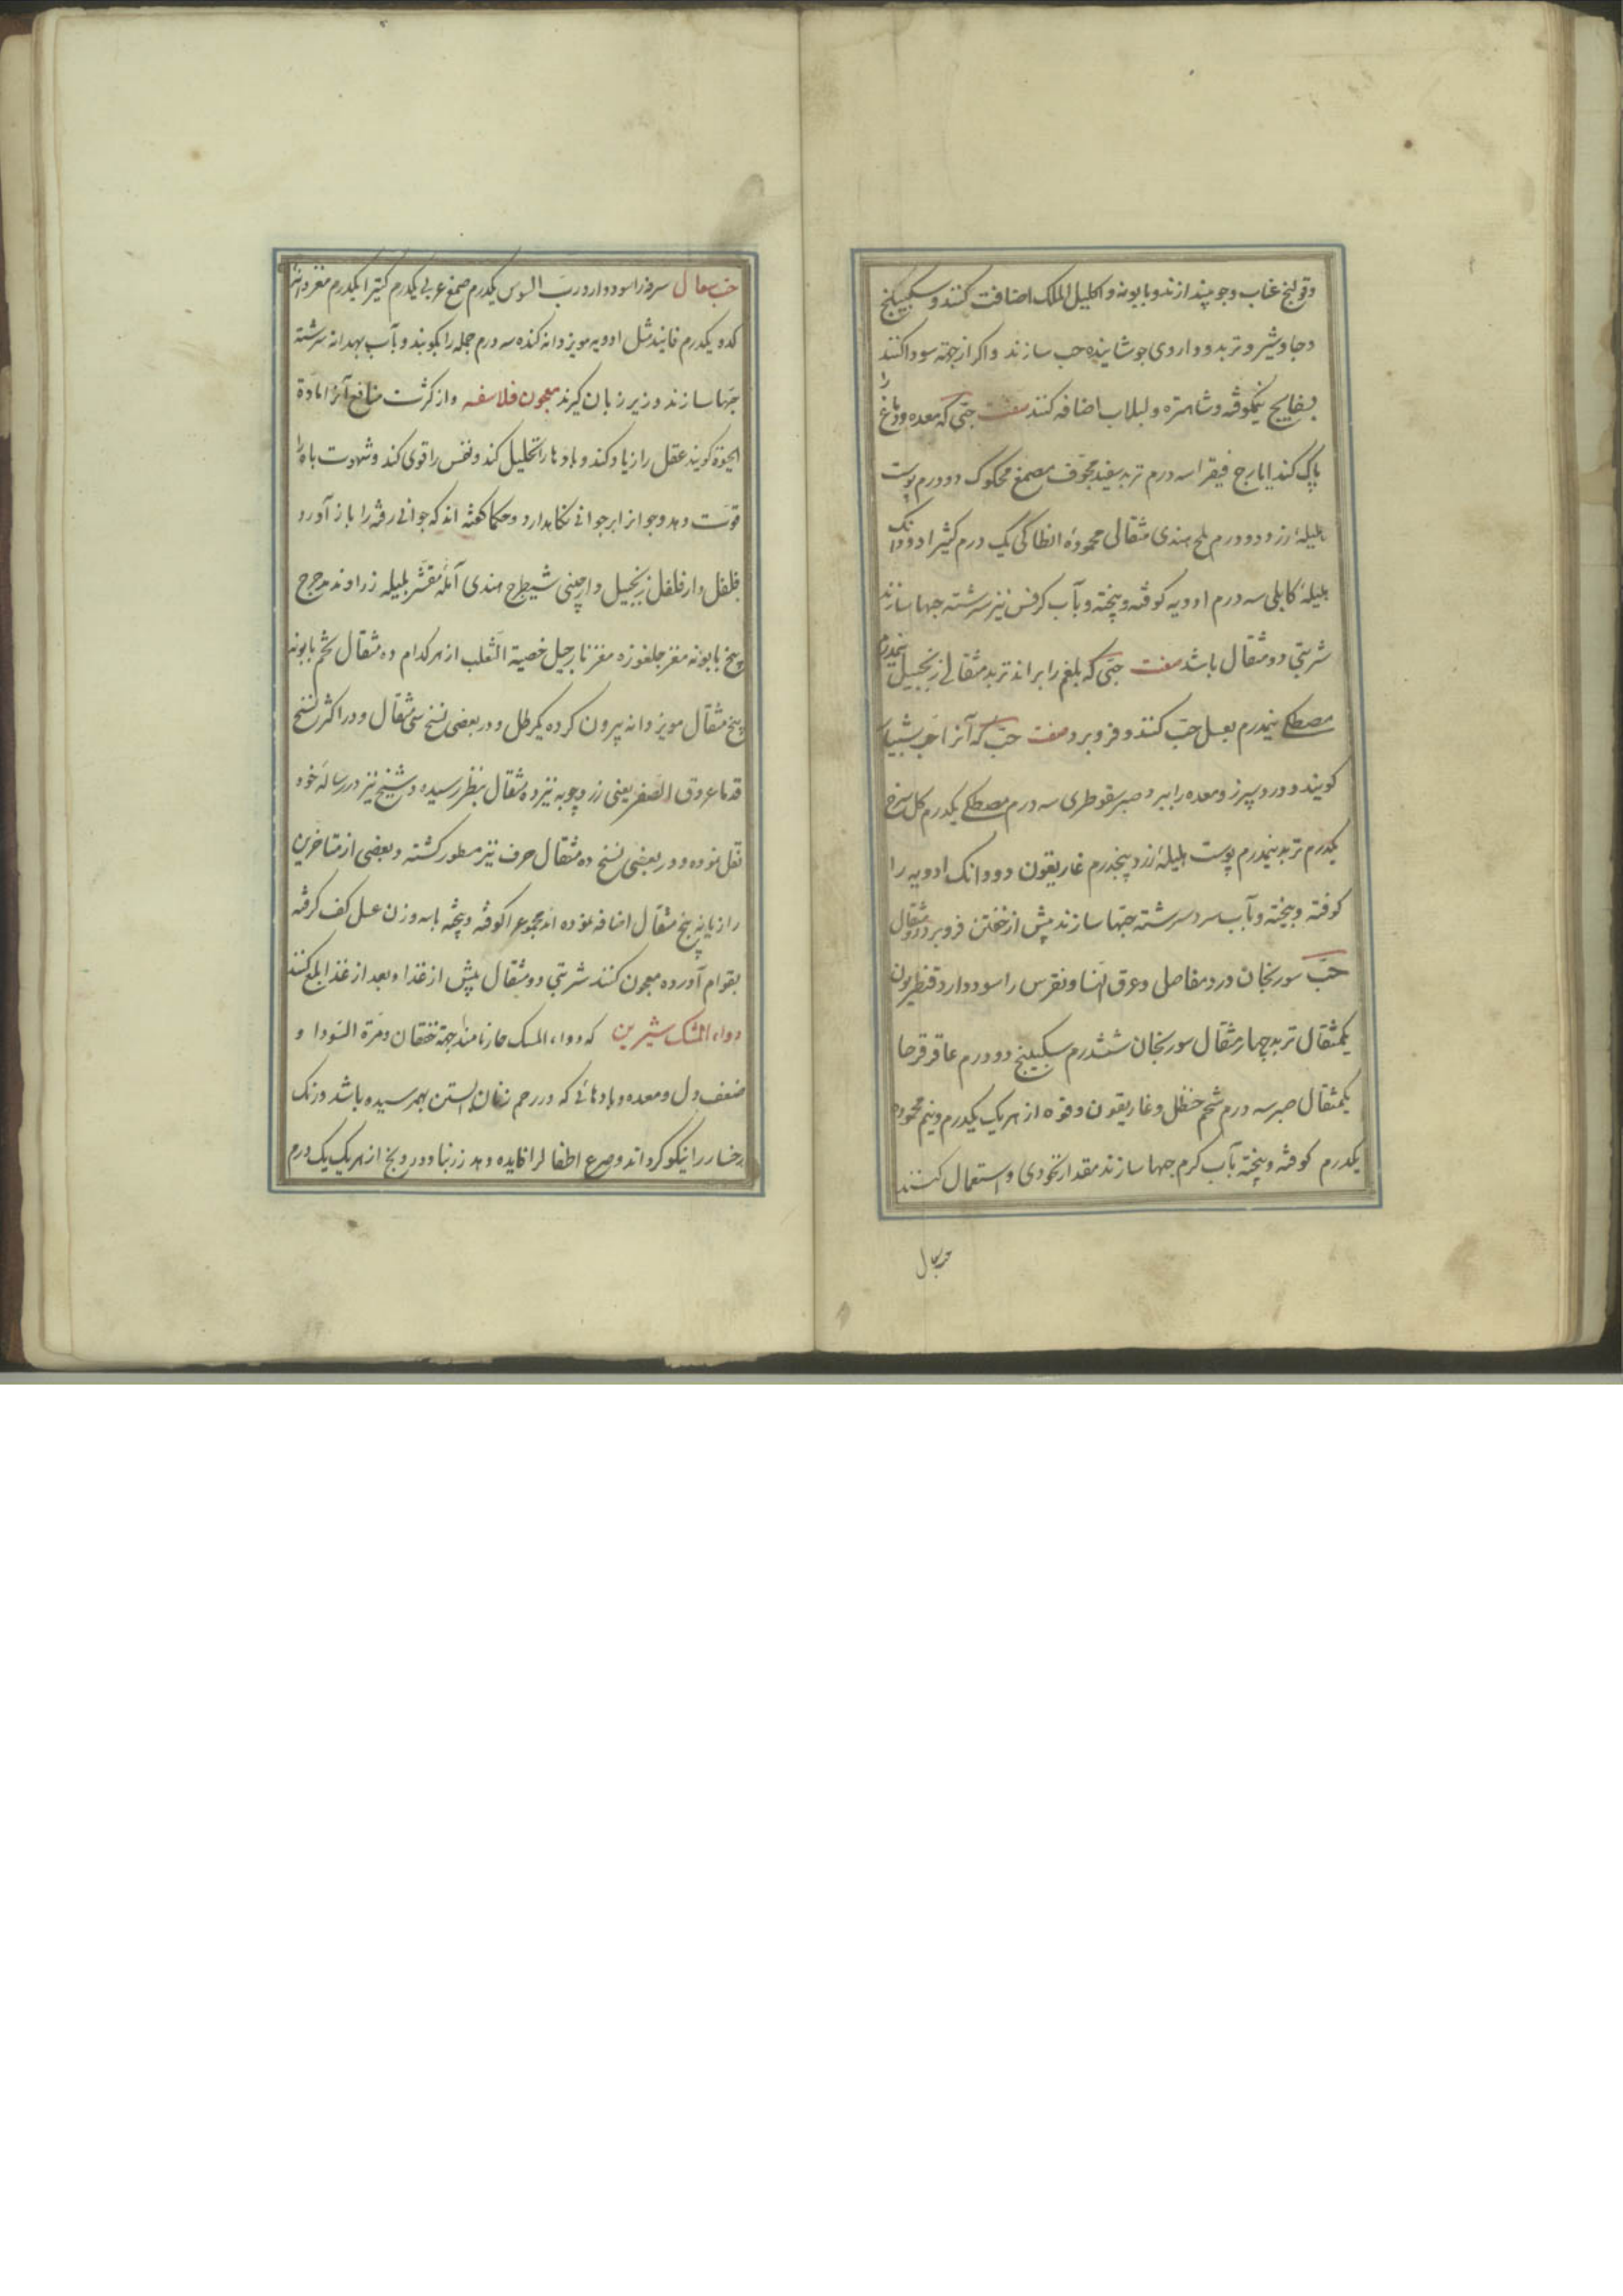 وقولنج عناب وجو پندازند وبابونه واکلیل الملک اضافت کنند وسکبینج
وجاوشیر وتربد وداروی جوشانیده حب سازند واکر از جهته سودا کنند
بسفایج نیمکوفته وشاهتره ولبلاب اضافه کنند صفت حبی که معده ودماغ را
پاک کند ایارج فیقرا سه درم تربد سفید مجوف مصمغ محکوک دو درم پوست
هلیلهٔ زرد دو درم ملح هندی مثقالی محمودهٔ انطاکی یک درم کثیرا دو دانک
هلیلهٔ کابلی سه درم ادویه کوفته وبیخته وبآب کرفس نیز سرشته حبها سازند
شربتی دو مثقال باشد صفت حبی که بلغم را براند تربد مثقالی زنجبیل نیمدرم
مصطکی نیمدرم بعسل حب کنند وفرو برد صفت حب که آنرا حب شبیار
کویند ودرد سپرز ومعده را ببرد صبر سقوطری سه درم مصطکی یکدرم کل سرخ
یکدرم تربد نیمدرم پوست هلیلهٔ زرد پنجدرم غاریقون دو دانک ادویه را
کوفته وبیخته وبآب سرد سرشته حبها سازند پیش از خفتن فرو برد دو مثقال
حب سورنجان درد مفاصل وعرق النسا ونقرس را سود دارد قنطریون
یکمثقال تربد چهار مثقال سورنجان ششدرم سکبینج دو درم عاقرقرحا
یکمثقال صبر سه درم شحم حنظل وغاریقون وفوه از هر یک یکدرم ونیم محموده
یکدرم کوفته وبیخته بآب کرم حبها سازند مقدار نخودی واستعمال کنند
حب سعال
حب سعال سرفه را سود دارد رب السوس یکدرم صمغ عربی یکدرم کتیرا یکدرم مغز دانه
کدو یکدرم فانید مثل ادویه مویز دانه کنده سه درم جمله را بکوبند وبآب بهدانه سرشته
حبها سازند وزیر زبان کیرند معجون فلاسفه واز کثرت منافع آنرا مادة
الحیوة کویند عقل را زیاد کند وبادها را تحلیل کند ونفس را قوی کند وشهوت باه را
قوت دهد وجوانرا بر جوانی نکاهدارد وحکما کفته اند که جوانی رفته را باز آورد
فلفل دارفلفل زنجبیل دارچینی شیطرج هندی آملهٔ مقشر بلیله زراوند مدحرج
بیخ بابونه مغز جلغوزه مغز نارجیل خصیة الثعلب از هر کدام ده مثقال تخم بابونه
پنج مثقال مویز دانه بیرون کرده یکرطل ودر بعضی نسخ سی مثقال ودر اکثر نسخ
قدما عروق الصفر یعنی زردچوبه نیز ده مثقال بنظر رسیده وشیخ نیز در رساله خود
نقل نموده ودر بعضی نسخ ده مثقال حرف نیز مسطور کشته وبعضی از متاخرین
رازیانه پنج مثقال اضافه نموده اند مجموع را کوفته وبیخته باسه وزن عسل کف کرفته
بقوام آورده معجون کنند شربتی دو مثقال پیش از غذا وبعد از غذا بلع کنند
دواء المسک شیرین که دواء المسک حار نامند جهة خفقان ومرة السودا و
ضعف دل ومعده وبادهائی که در رحم زنان آبستن بهم رسیده باشد ورنک
رخسار را نیکو کرداند وصرع اطفال را فایده دهد زرنباد درونج از هر یک یک درم